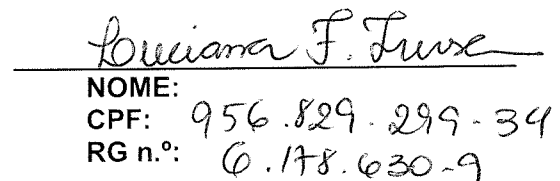 Luciana F.
NOME:
CPF: 956.829.299-34
RG n.º: 6.178.630-9